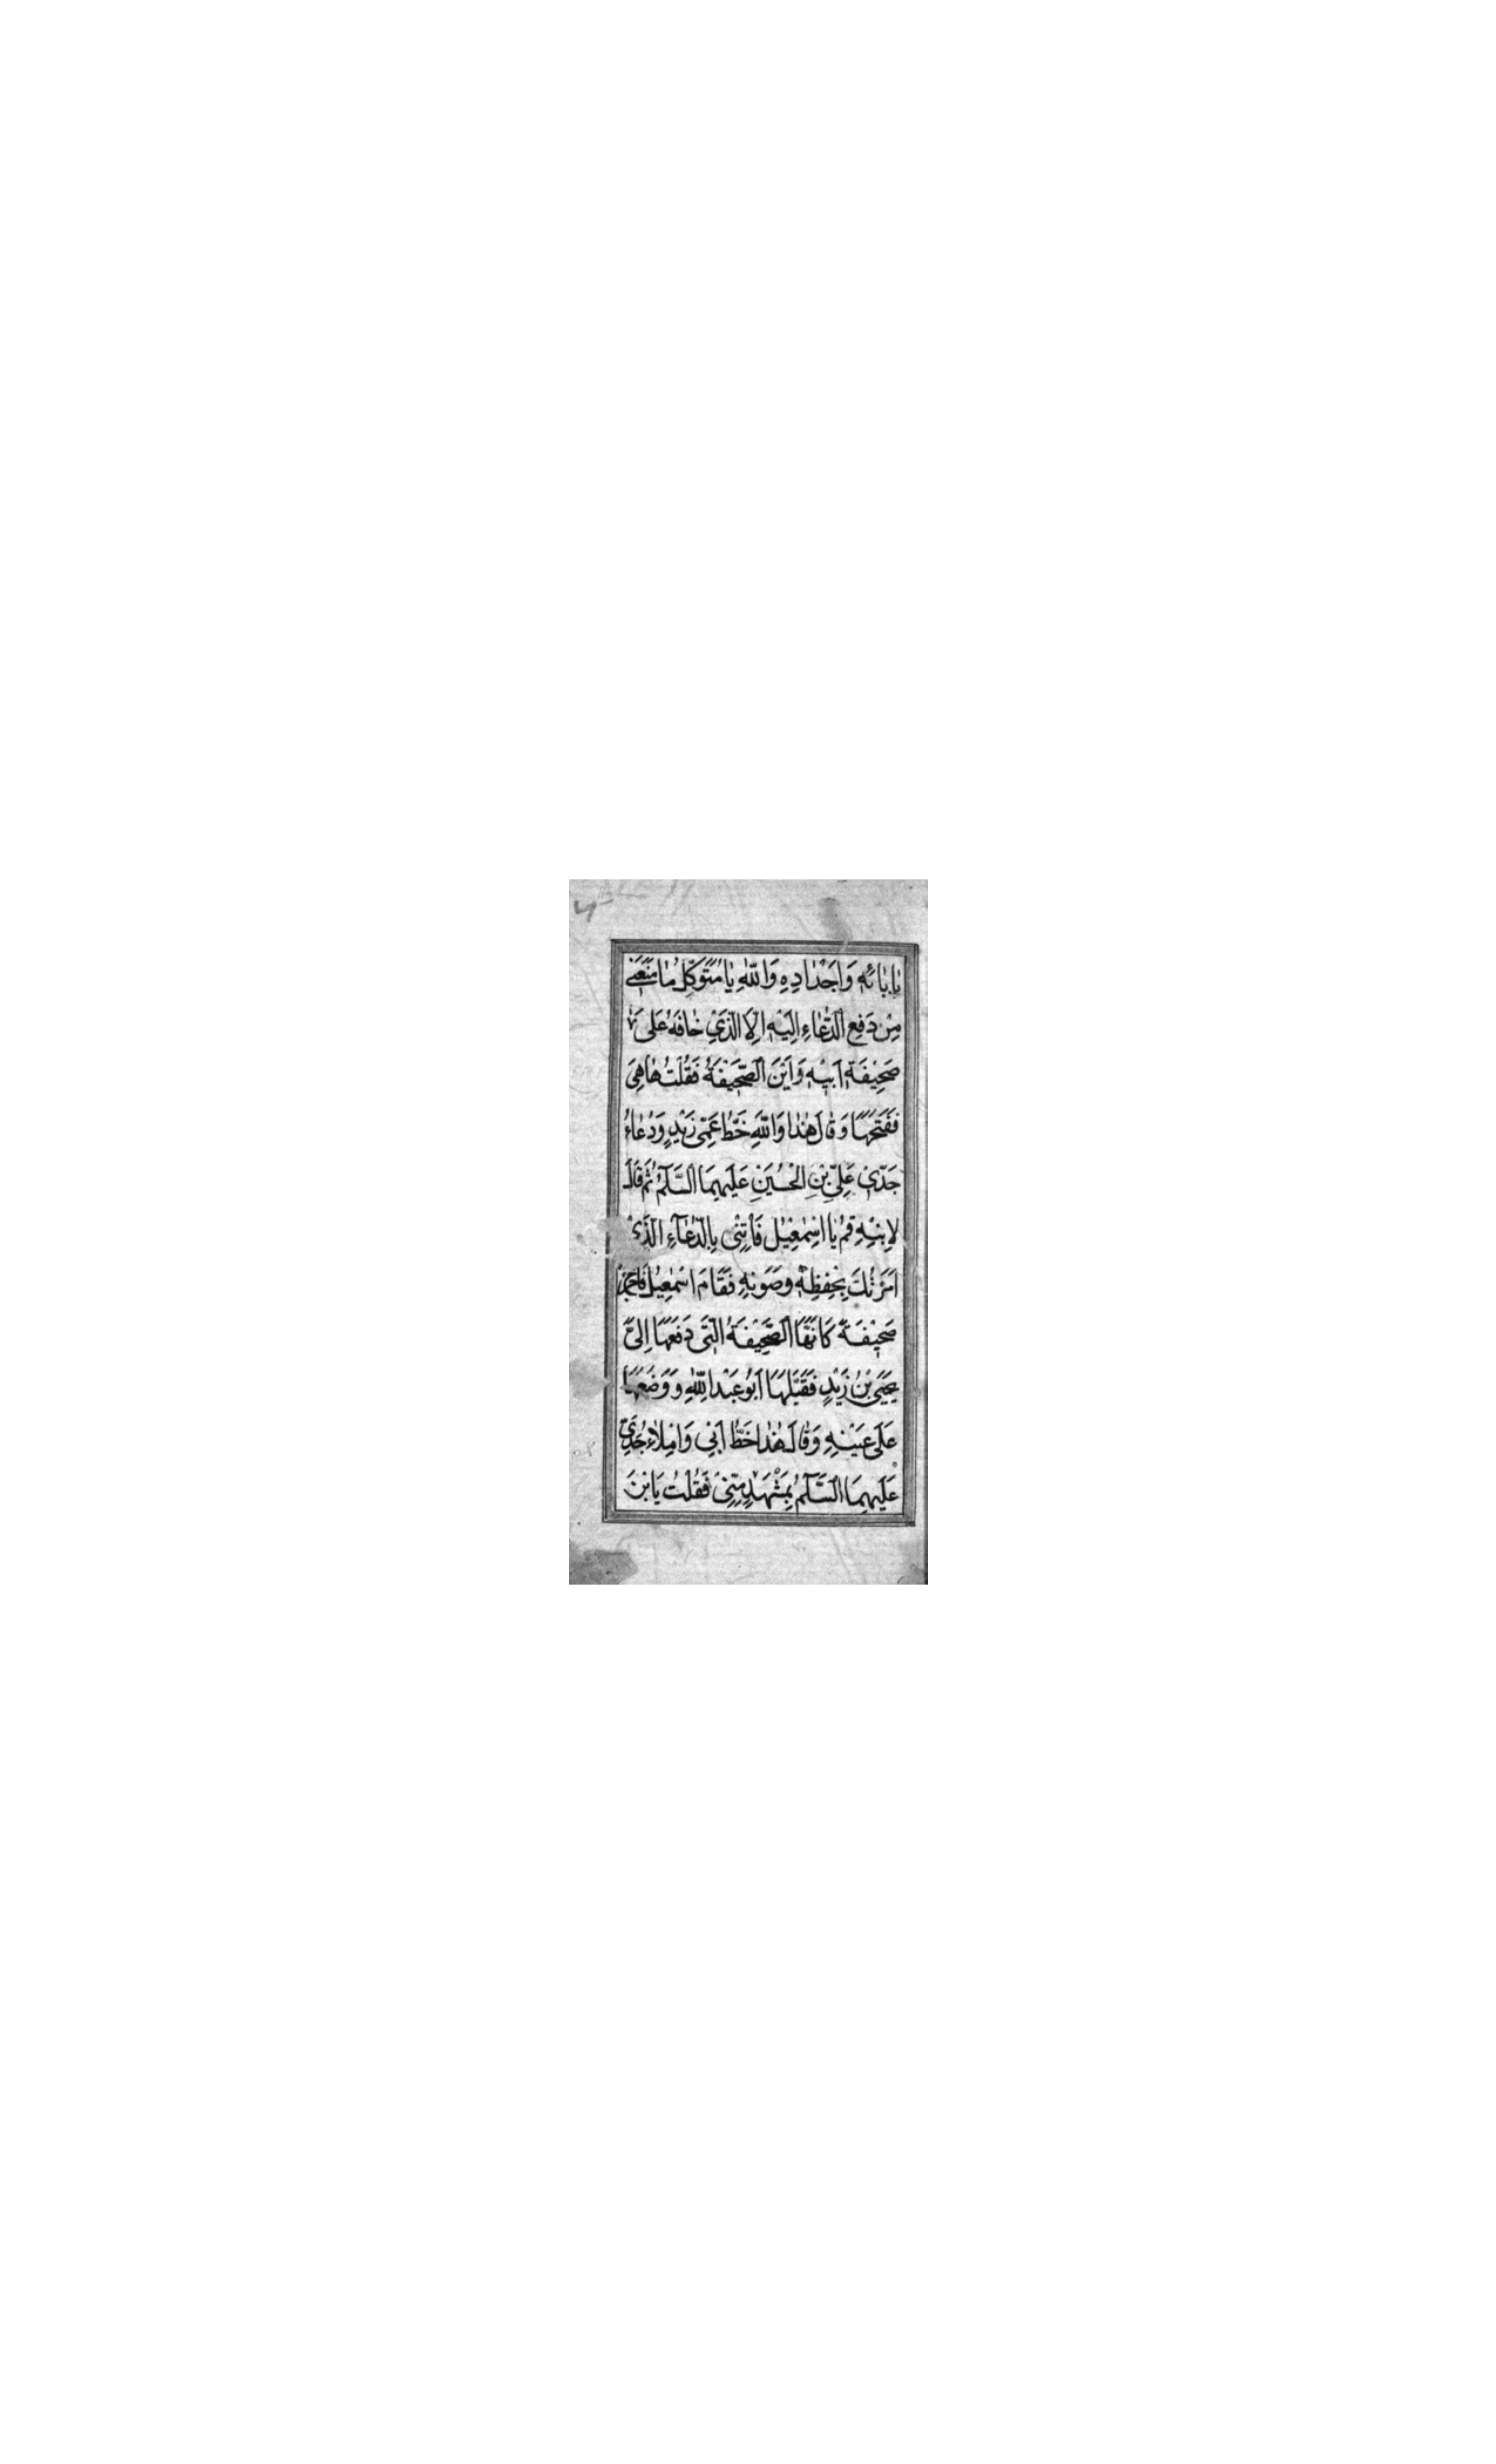 بِاٰبَائِهٖ وَاَجْدَادِهٖ وَاللّٰهِ يَا مُتَوَكِّلُ مَا مَنَعَنِي
مِنْ دَفْعِ الدُّعَاءِ اِلَيْهِ اِلَّا الَّذِي خَافَهُ عَلىٰ
صَحِيْفَةِ اَبِيْهِ وَاَيْنَ الصَّحِيْفَةُ فَقُلْتُ هَاهِيَ
فَفَتَحَهَا وَقَالَ هٰذَا وَاللّٰهِ خَطُّ عَمِّي زَيْدٍ وَدُعَاءُ
جَدِّي عَلِيِّ بْنِ الْحُسَيْنِ عَلَيْهِمَا السَّلَمُ ثُمَّ قَالَ
لِابْنِهِ قُمْ يَا اِسْمٰعِيْلُ فَأْتِنِي بِالدُّعَآءِ الَّذِي
اَمَرْتُكَ بِحِفْظِهِ وَصَوْنِهِ فَقَامَ اِسْمٰعِيْلُ فَاَخْرَجَ
صَحِيْفَةً كَاَنَّهَا الصَّحِيْفَةُ الَّتِي دَفَعَهَا اِلَيَّ
يَحْيَى بْنُ زَيْدٍ فَقَبَّلَهَا اَبُو عَبْدِ اللّٰهِ وَوَضَعَهَا
عَلىٰ عَيْنِهِ وَقَالَ هٰذَا خَطُّ اَبِي وَاِمْلَاءُ جَدِّي
عَلَيْهِمَا السَّلَمُ بِمَشْهَدٍ مِنِّي فَقُلْتُ يَا بْنَ